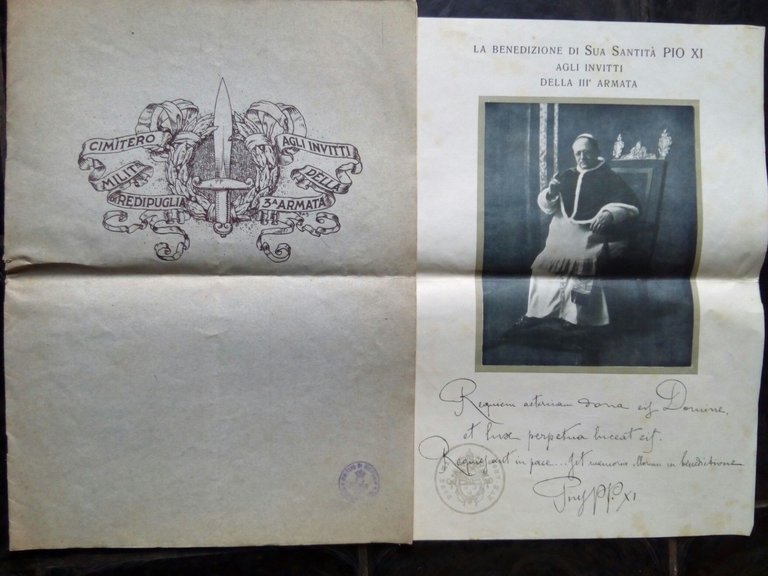 CIMITERO
AGLI INVITTI
MILITI
DELLA
DI REDIPUGLIA
3ª ARMATA
LA BENEDIZIONE DI SUA SANTITÀ PIO XI
AGLI INVITTI
DELLA IIIª ARMATA
Requiem aeternam dona eis Domine,
et lux perpetua luceat eis.
Requiescant in pace... Set memoria illorum in benedictione
Pius PP. XI